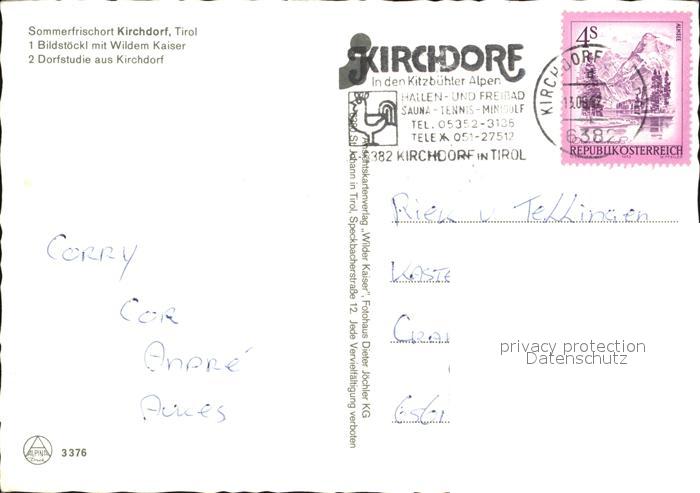 Sommerfrischort Kirchdorf, Tirol
1 Bildstöckl mit Wildem Kaiser
2 Dorfstudie aus Kirchdorf
KIRCHDORF
in den Kitzbühler Alpen
HALLEN- UND FREIBAD
SAUNA - TENNIS - MINIGOLF
TEL. 05352-3136
TELEX 051-27512
A-6382 KIRCHDORF IN TIROL
KIRCHDORF
6382
4S
ALMSEE
REPUBLIK ÖSTERREICH
Ansichtskartenverlag „Wilder Kaiser", Fotohaus Dieter Jöchler KG
6380 St. Johann in Tirol, Speckbacherstraße 12. Jede Vervielfältigung verboten
Riek v Tellingen
KASTE
CRA
Corry
Cor
André
privacy protection
Datenschutz
ALPINA
Druck
3376